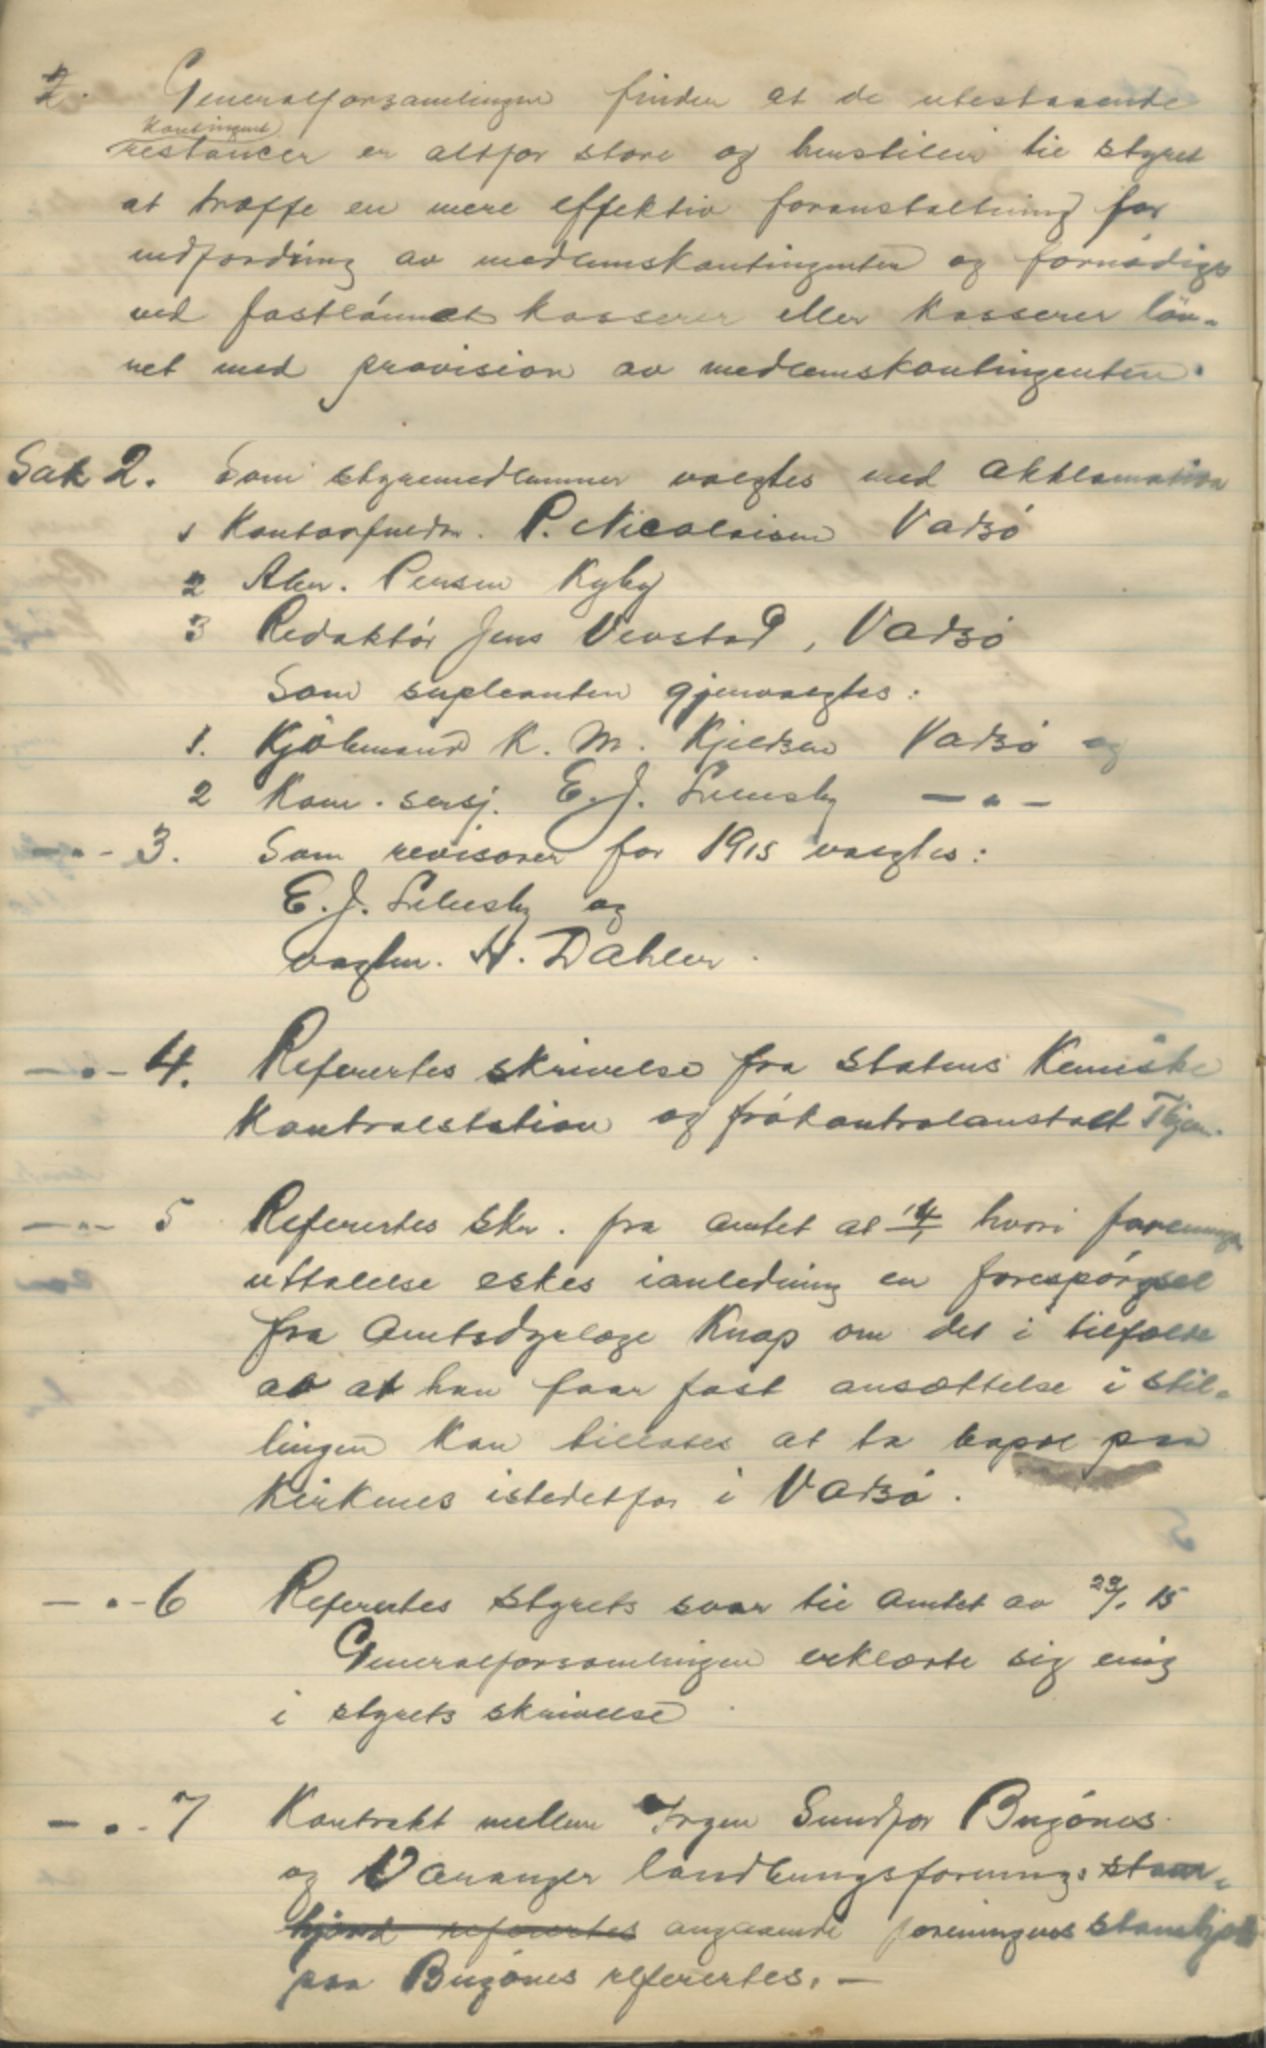 2. Generalforsamlingen finder at de utestaaende
kontingent
restancer er altfor store og henstiller til styret
at træffe en mere effektiv foranstaltning for
indfordring av medlemskontingenten og fornødiges
ved fastlønnet kasserer eller kasserer løn-
net med provision av medlemskontingenten.
Sak 2. Som styremedlemmer valgtes med akklamation
1 Kontorfuldm. P. Nicolaisen Vadsø
2 Alen. Persen Kyby
3 Redaktør Jens Vevstad, Vadsø
Som supleanter gjenvalgtes:
1. Kjøbmand K. M. Kjeldsen Vadsø og
2 Kom. sersj. E. J. -"-
-"- 3. Som revisorer for 1915 valgtes:
E. J. og
vagtm. H. Dahler.
-"- 4. Referertes skrivelse fra statens Kemiske
Kontrolstation og frøkontrolanstalt Thjem.
-"- 5 Referertes skr. fra amtet at 14/1 hvori foreningens
uttalelse eskes ianledning en forespørgsel
fra Amtsdyrlæge Knap om det i tilfælde
av at han faar fast ansættelse i stil-
lingen kan tillates at ta bopæl paa
Kirkenes istedetfor i Vadsø.
-"- 6 Referertes styrets svar til amtet av 29/1 15
Generalforsamlingen erklærte sig enig
i styrets skrivelse
-"- 7 Kontrakt mellem Irgen Sundfør Bugønes
og Varanger landhusholdningsforenings stam-
hjord referertes angaaende foreningens stamhjord
paa Bugønes referertes. -